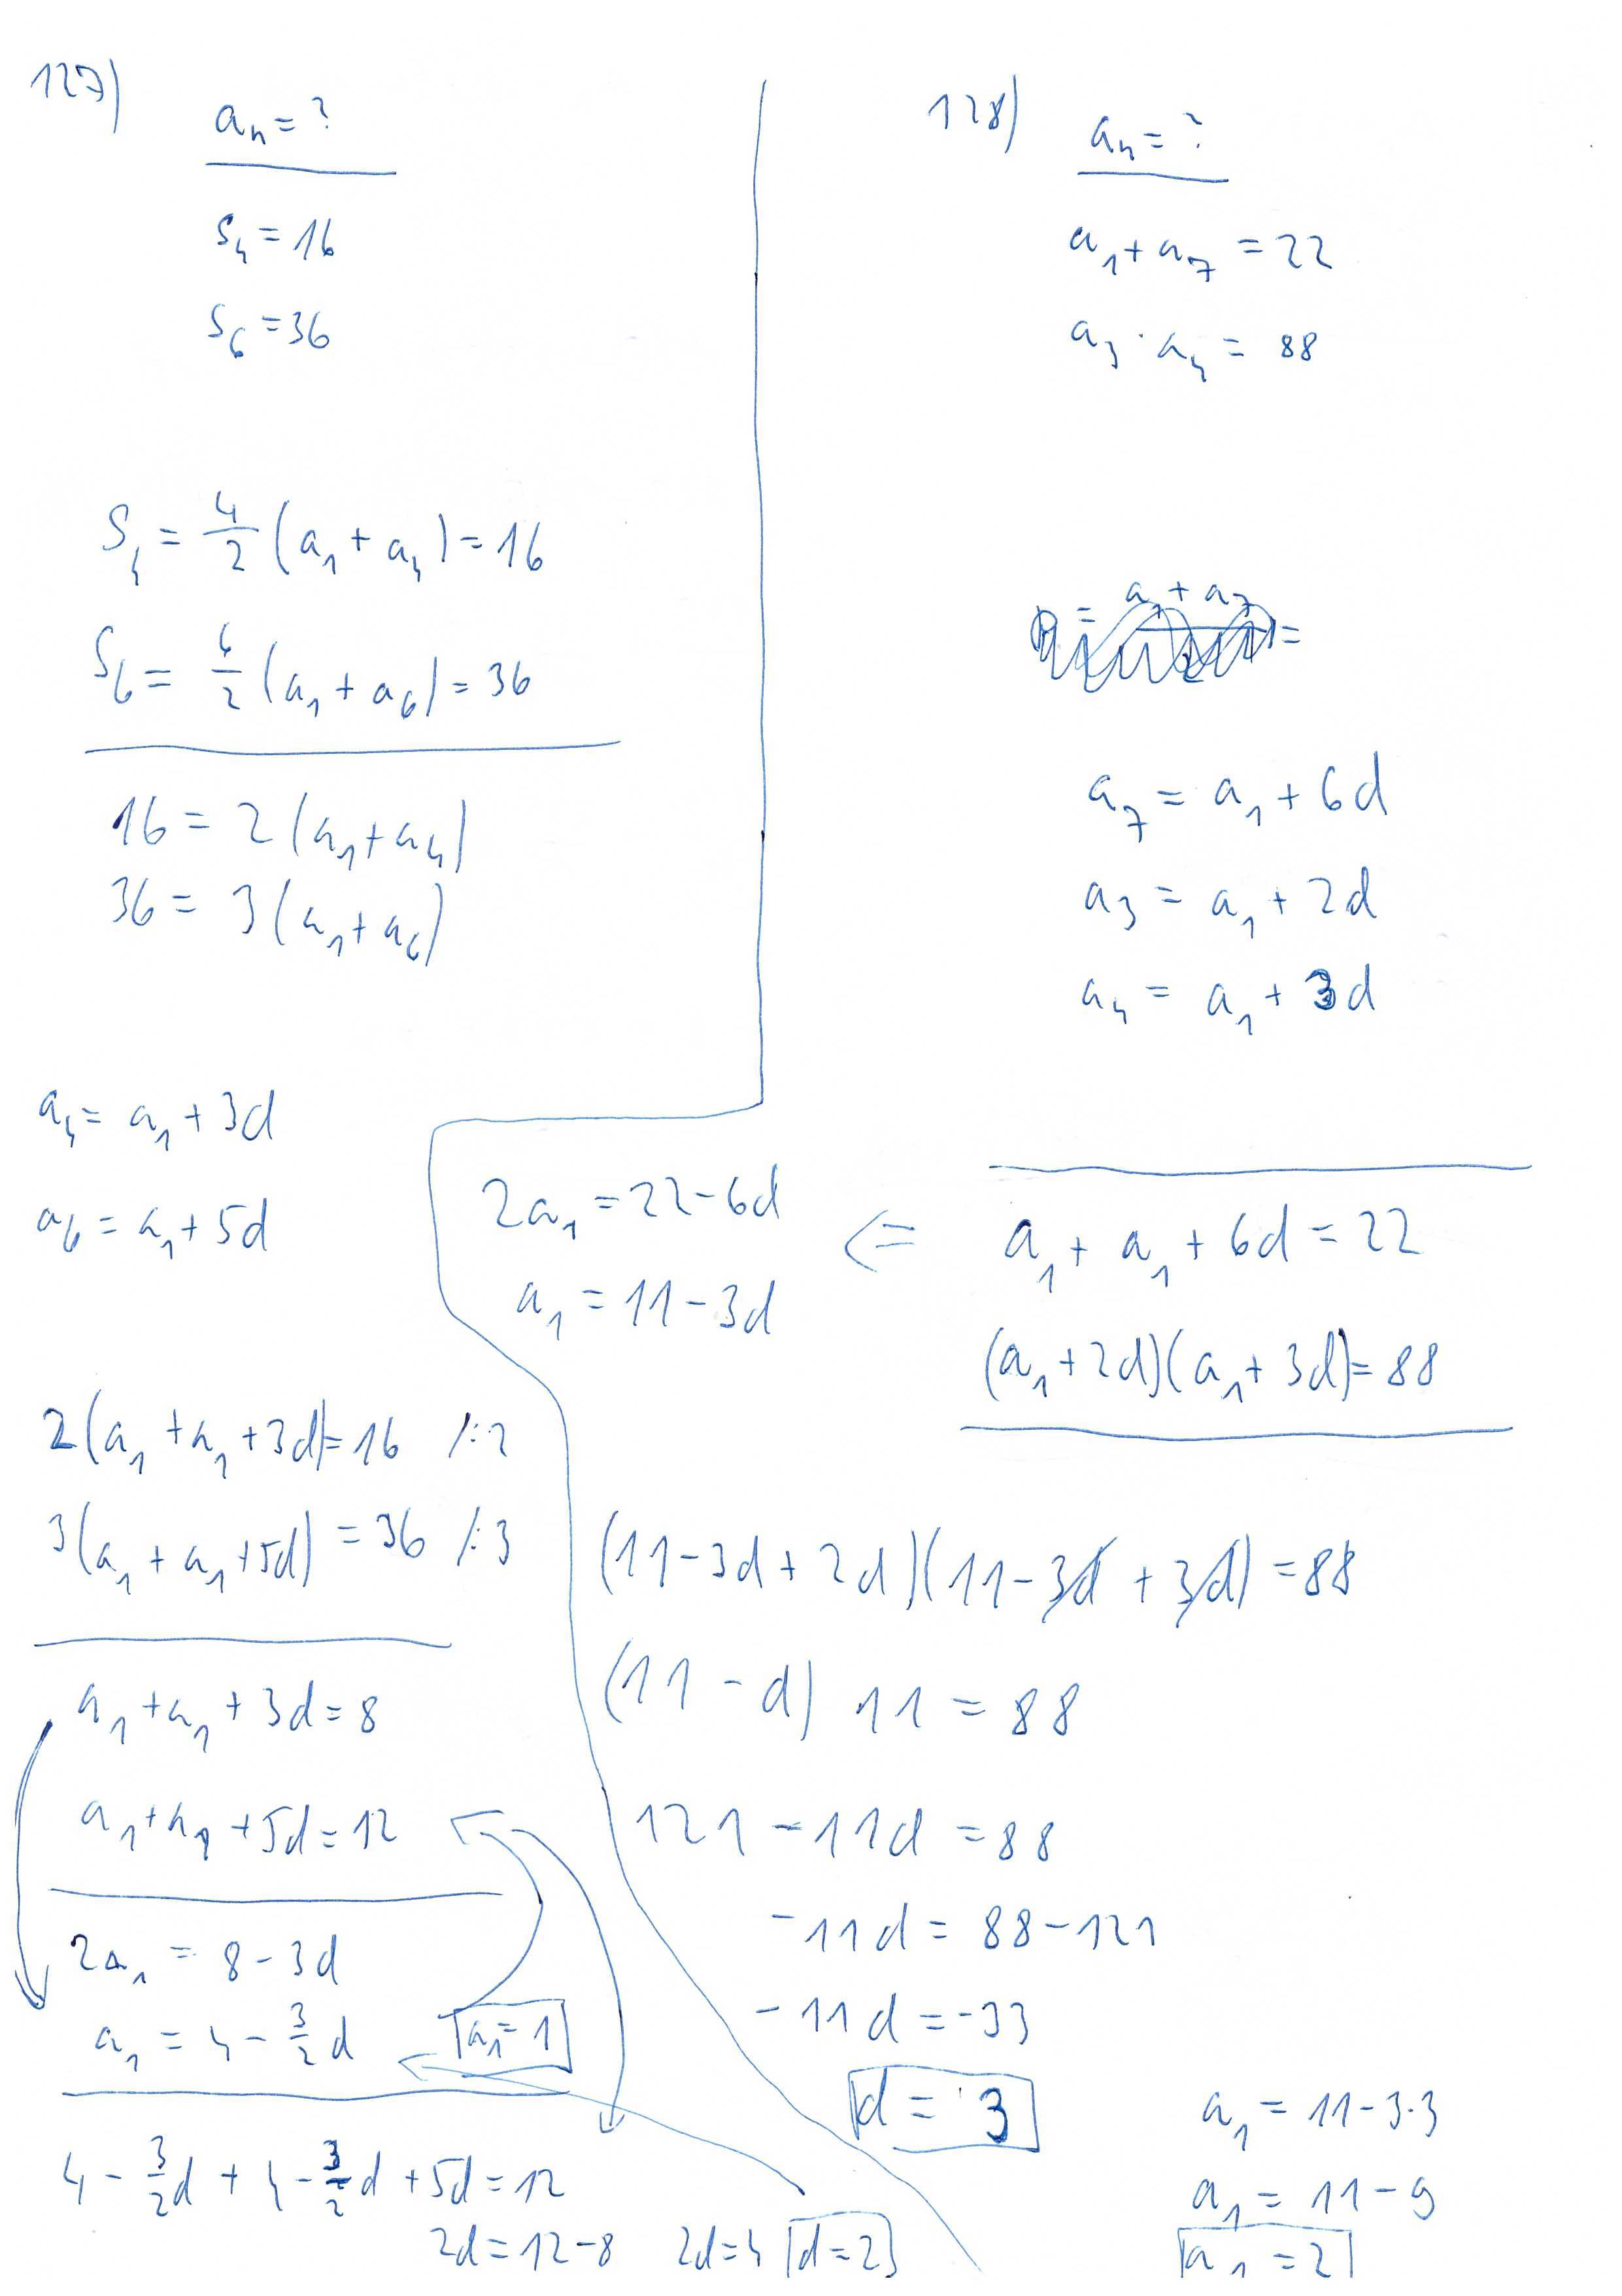 127)
aₙ = ?
S₄ = 16
S₆ = 36
S₄ = 4/2 (a₁ + a₄) = 16
S₆ = 6/2 (a₁ + a₆) = 36
16 = 2 (a₁ + a₄)
36 = 3 (a₁ + a₆)
a₄ = a₁ + 3d
a₆ = a₁ + 5d
2(a₁ + a₁ + 3d) = 16 /:2
3(a₁ + a₁ + 5d) = 36 /:3
a₁ + a₁ + 3d = 8
a₁ + a₁ + 5d = 12
2a₁ = 8 - 3d
a₁ = 4 - 3/2 d a₁ = 1
4 - 3/2 d + 4 - 3/2 d + 5d = 12
2d = 12 - 8 2d = 4 d = 2
128)
aₙ = ?
a₁ + a₇ = 22
a₃ · a₄ = 88
a₁ + a₇
a₇ = a₁ + 6d
a₃ = a₁ + 2d
a₄ = a₁ + 3d
2a₁ = 22 - 6d <= a₁ + a₁ + 6d = 22
a₁ = 11 - 3d
(a₁ + 2d)(a₁ + 3d) = 88
(11 - 3d + 2d)(11 - 3d + 3d) = 88
(11 - d) 11 = 88
121 - 11d = 88
-11d = 88 - 121
-11d = -33
d = 3
a₁ = 11 - 3·3
a₁ = 11 - 9
a₁ = 2